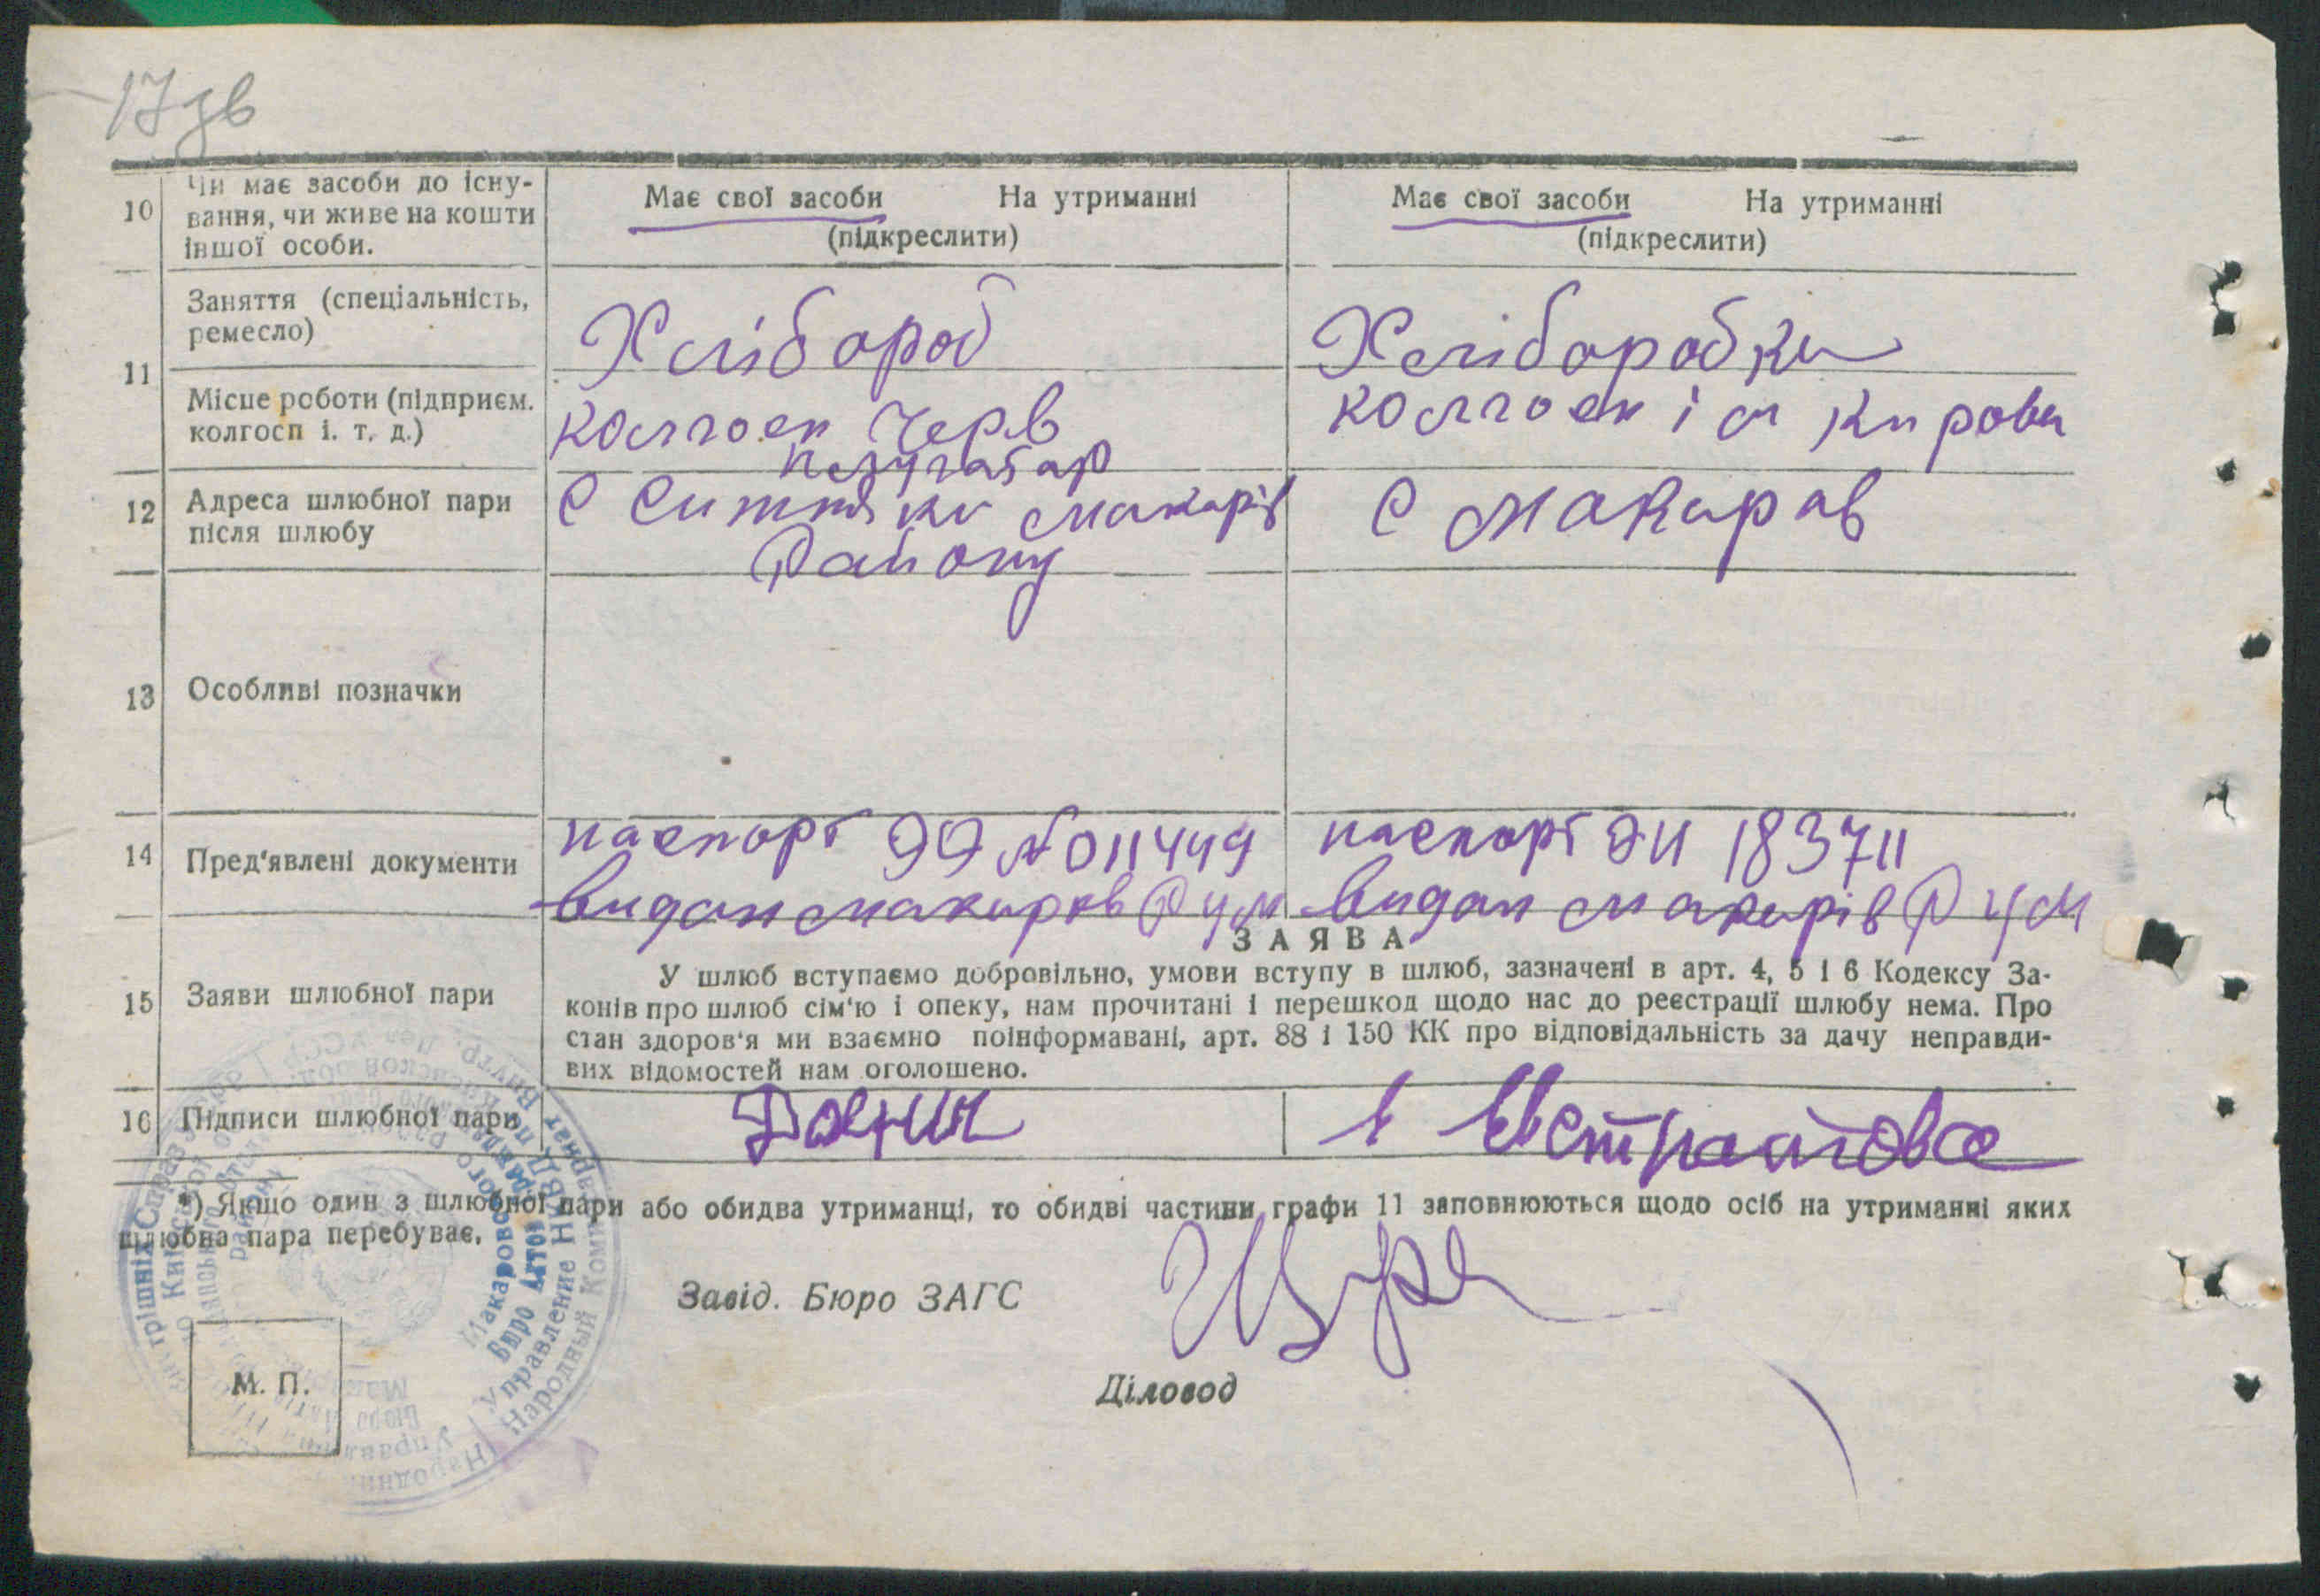 17 зв
10 Чи має засоби до існу-
вання, чи живе на кошти
іншої особи.
Має свої засоби На утриманні
(підкреслити)
Має свої засоби На утриманні
(підкреслити)
11
Заняття (спеціальність,
ремесло)
Хлібороб
Хліборобка
Місце роботи (підприєм.
колгосп і. т. д.)
колгосп Черв
плугатар
колгосп ім Кирова
12 Адреса шлюбної пари
після шлюбу
с Ситняки Макарів
Району
с Макаров
13 Особливі позначки
14 Пред'явлені документи
паспорт ЭЭ № 011449
видан Макаров РУМ
паспорт ЭИ 183711
видан Макарів РУМ
15 Заяви шлюбної пари
ЗАЯВА
У шлюб вступаємо добровільно, умови вступу в шлюб, зазначені в арт. 4, 5 і 6 Кодексу За-
конів про шлюб сім'ю і опеку, нам прочитані і перешкод щодо нас до реєстрації шлюбу нема. Про
стан здоров'я ми взаємно поінформавані, арт. 88 і 150 КК про відповідальність за дачу неправди-
вих відомостей нам оголошено.
16 Підписи шлюбної пари
Евстратова
*) Якщо один з шлюбної пари або обидва утриманці, то обидві частини графи 11 заповнюються щодо осіб на утриманні яких
шлюбна пара перебуває.
Завід. Бюро ЗАГС
Діловод
М. П.
Народный Комиссариат Внутр. Дел УССР
Управление НКВД